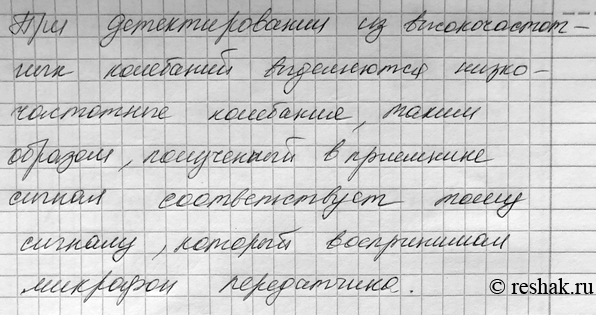 При детектировании из высокочастот-
ных колебаний выделяются низко-
частотные колебания, таким
образом, полученный в приемнике
сигнал соответствует тому
сигналу, который воспринимал
микрофон передатчика.
© reshak.ru